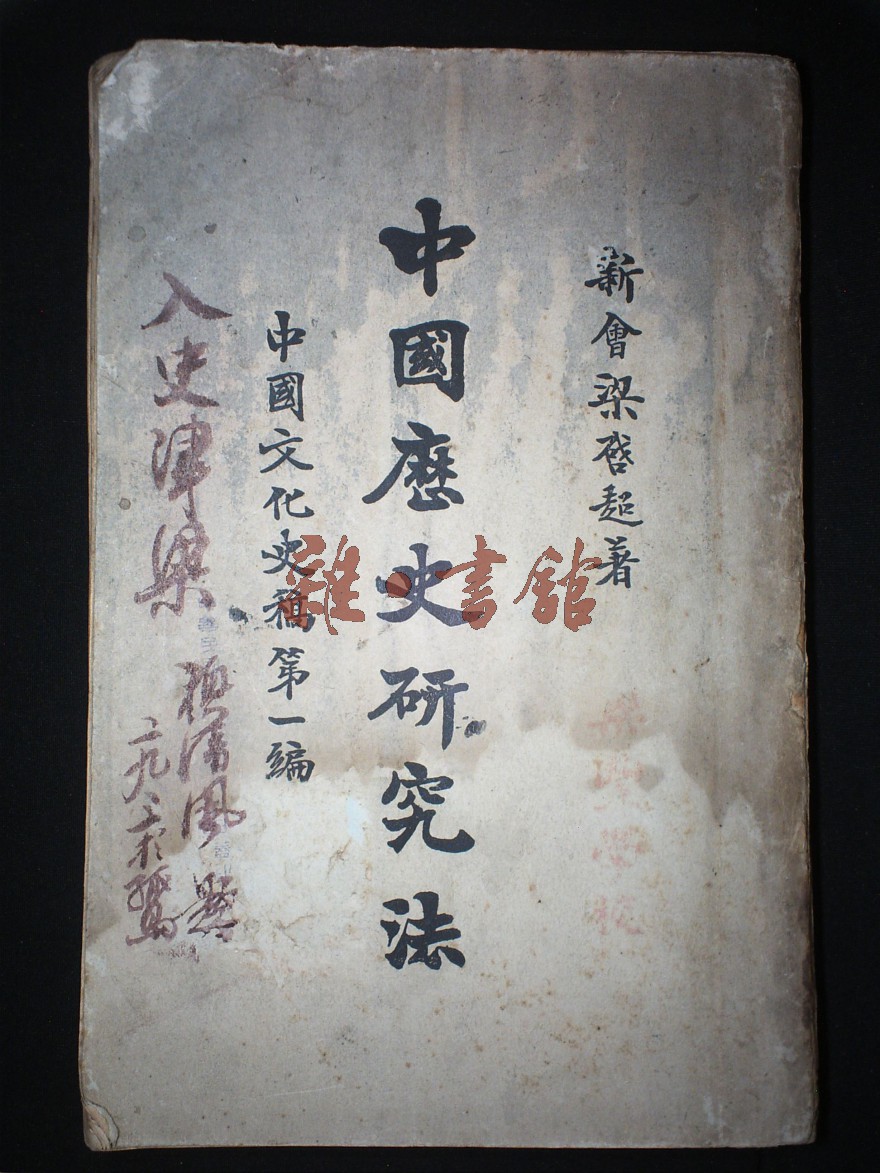 新會梁啓超著
中國歷史研究法
中國文化史稿第一編
入史津梁
雜·書館